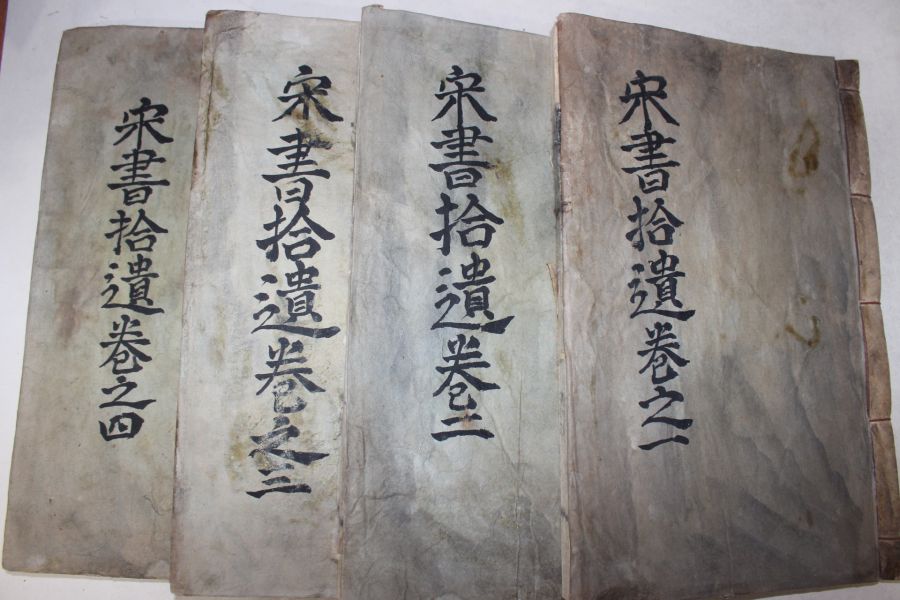 宋書拾遺卷之一
宋書拾遺卷二
宋書拾遺卷之三
宋書拾遺卷之四